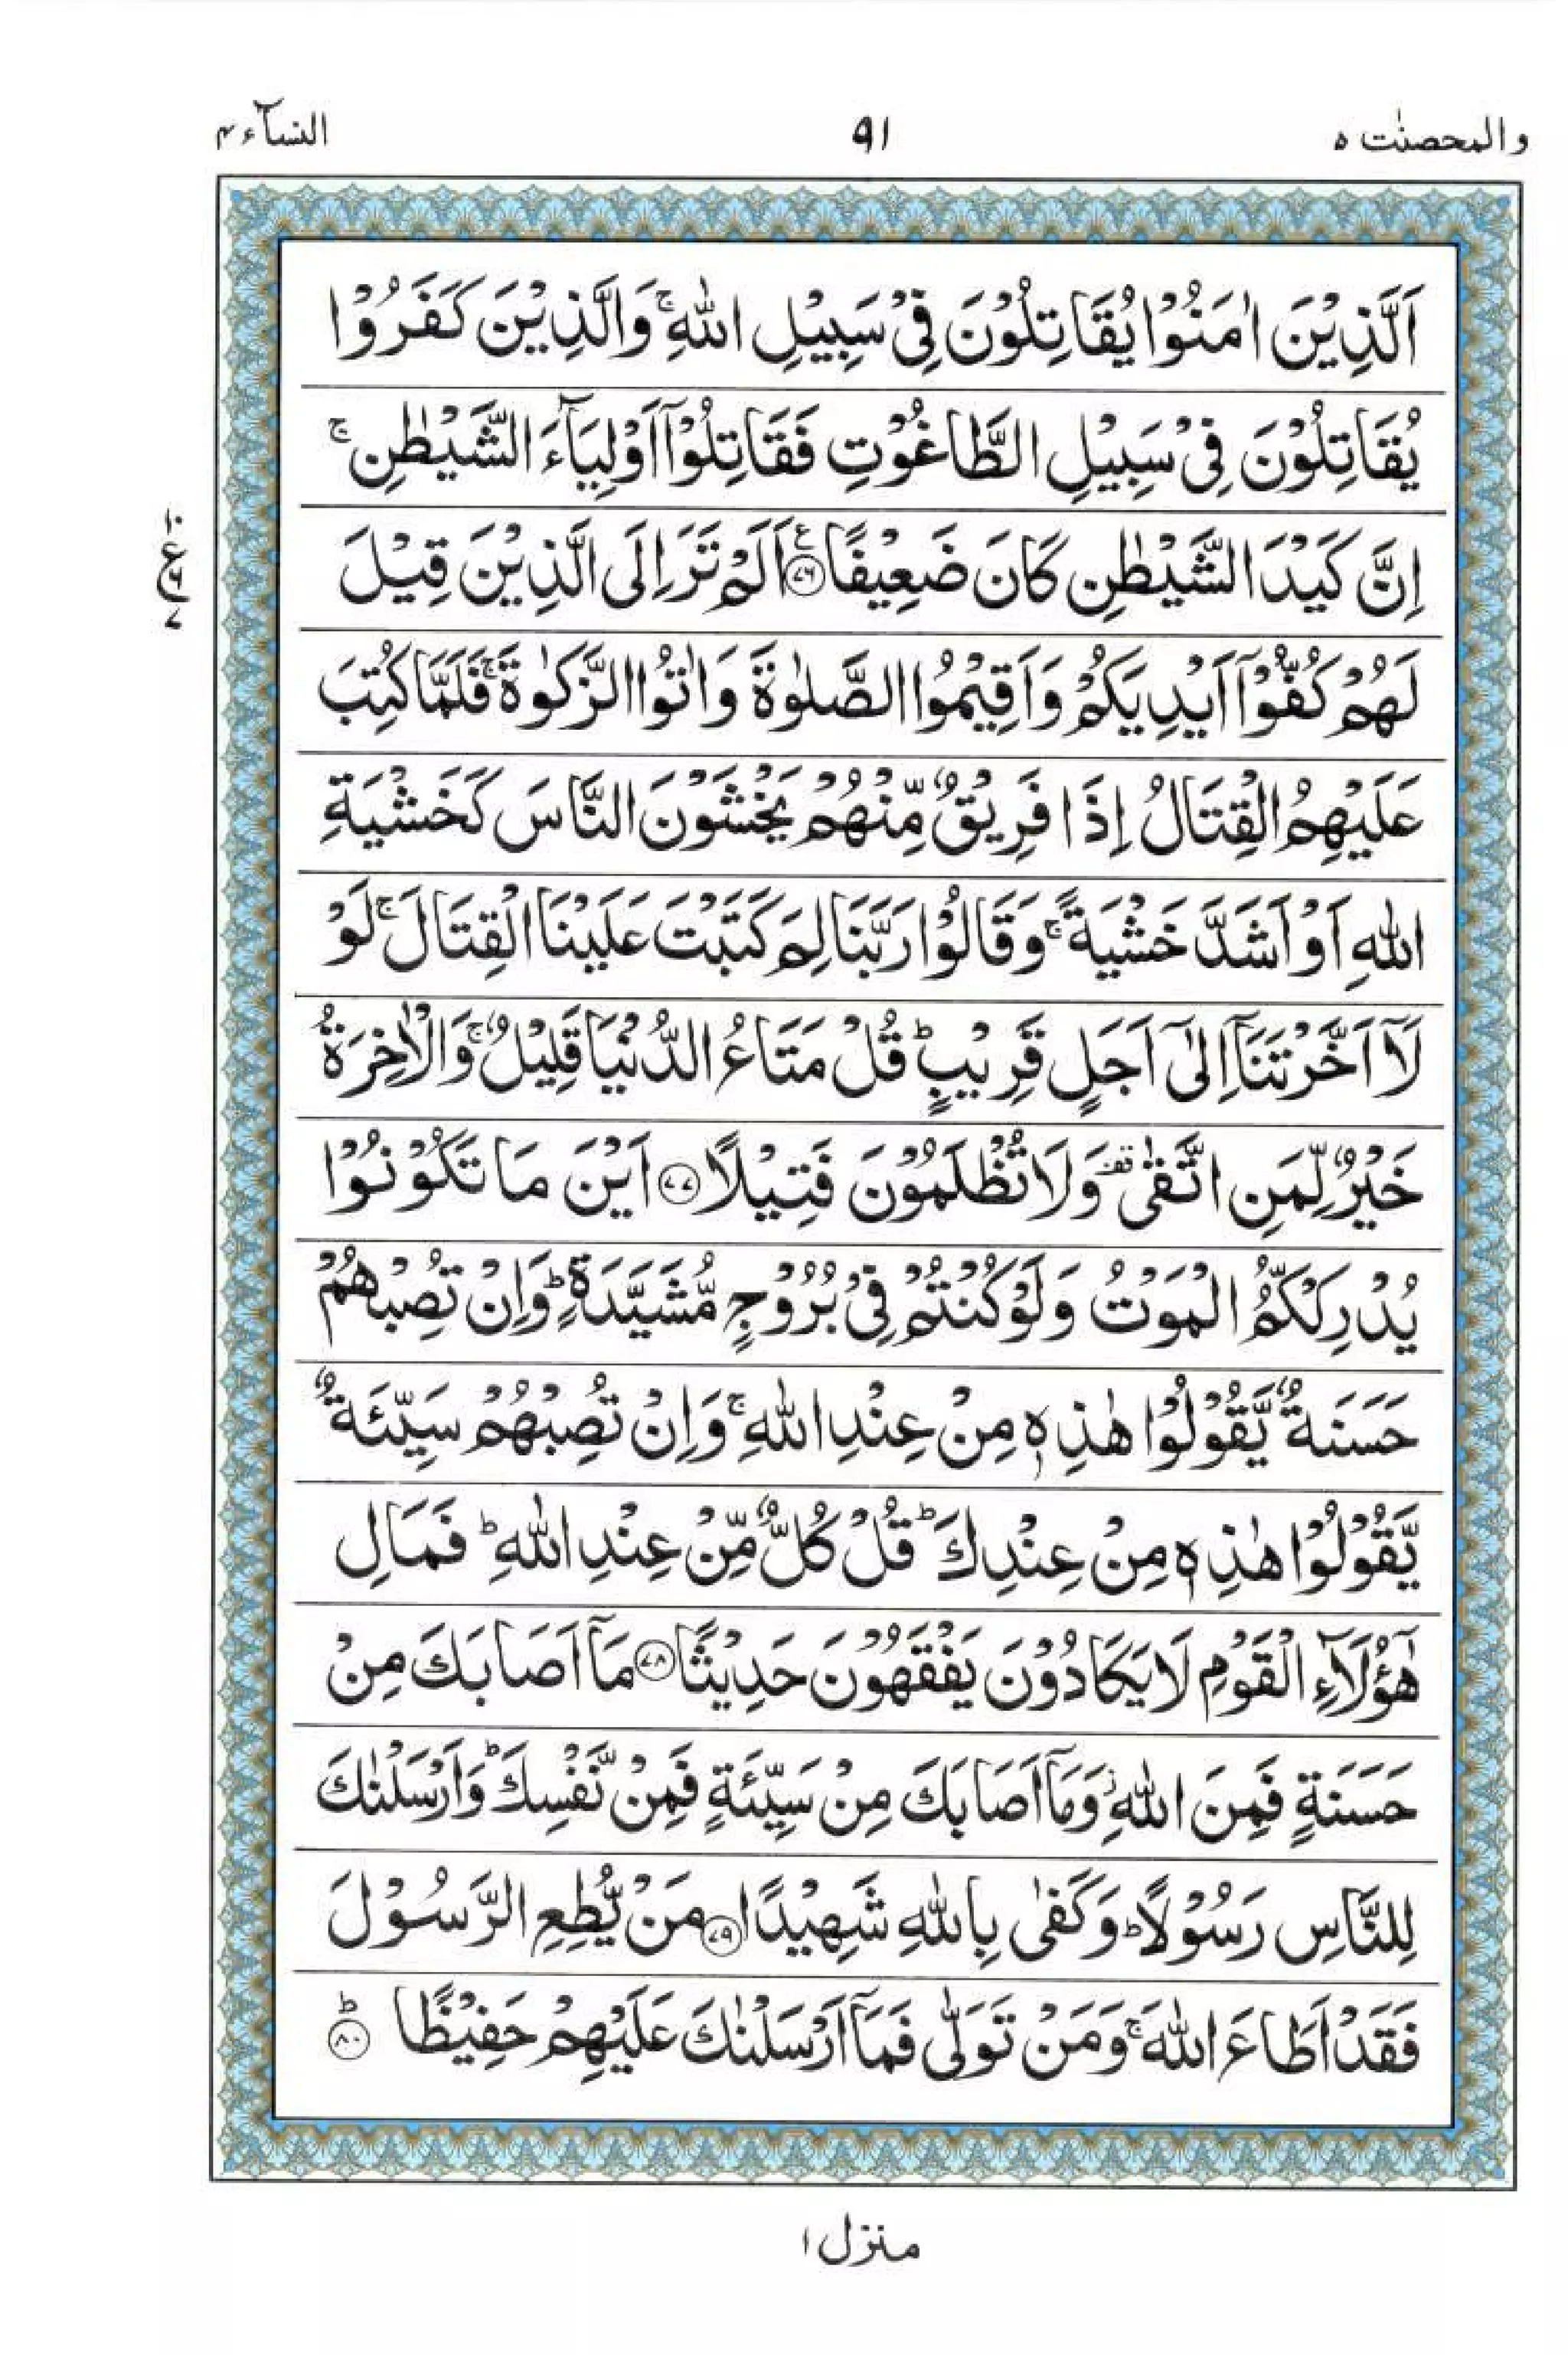 والمحصنٰت ٥ ٩١ النسآء ٤
اَلَّذِيْنَ اٰمَنُوْا يُقَاتِلُوْنَ فِيْ سَبِيْلِ اللّٰهِ ۚ وَالَّذِيْنَ كَفَرُوْا
يُقَاتِلُوْنَ فِيْ سَبِيْلِ الطَّاغُوْتِ فَقَاتِلُوْٓا اَوْلِيَآءَ الشَّيْطٰنِ ۚ
اِنَّ كَيْدَ الشَّيْطٰنِ كَانَ ضَعِيْفًا ۧ ﴿٧٦﴾ اَلَمْ تَرَ اِلَى الَّذِيْنَ قِيْلَ
لَهُمْ كُفُّوْٓا اَيْدِيَكُمْ وَاَقِيْمُوا الصَّلٰوةَ وَاٰتُوا الزَّكٰوةَ ۚ فَلَمَّا كُتِبَ
عَلَيْهِمُ الْقِتَالُ اِذَا فَرِيْقٌ مِّنْهُمْ يَخْشَوْنَ النَّاسَ كَخَشْيَةِ
اللّٰهِ اَوْ اَشَدَّ خَشْيَةً ۚ وَقَالُوْا رَبَّنَا لِمَ كَتَبْتَ عَلَيْنَا الْقِتَالَ ۚ لَوْ
لَآ اَخَّرْتَنَآ اِلٰٓى اَجَلٍ قَرِيْبٍ ؕ قُلْ مَتَاعُ الدُّنْيَا قَلِيْلٌ ۚ وَالْاٰخِرَةُ
خَيْرٌ لِّمَنِ اتَّقٰى ۫ وَلَا تُظْلَمُوْنَ فَتِيْلًا ﴿٧٧﴾ اَيْنَ مَا تَكُوْنُوْا
يُدْرِكْكُّمُ الْمَوْتُ وَلَوْ كُنْتُمْ فِيْ بُرُوْجٍ مُّشَيَّدَةٍ ؕ وَاِنْ تُصِبْهُمْ
حَسَنَةٌ يَّقُوْلُوْا هٰذِهٖ مِنْ عِنْدِ اللّٰهِ ۚ وَاِنْ تُصِبْهُمْ سَيِّئَةٌ
يَّقُوْلُوْا هٰذِهٖ مِنْ عِنْدِكَ ؕ قُلْ كُلٌّ مِّنْ عِنْدِ اللّٰهِ ؕ فَمَالِ
هٰٓؤُلَآءِ الْقَوْمِ لَا يَكَادُوْنَ يَفْقَهُوْنَ حَدِيْثًا ﴿٧٨﴾ مَآ اَصَابَكَ مِنْ
حَسَنَةٍ فَمِنَ اللّٰهِ ؗ وَمَآ اَصَابَكَ مِنْ سَيِّئَةٍ فَمِنْ نَّفْسِكَ ؕ وَاَرْسَلْنٰكَ
لِلنَّاسِ رَسُوْلًا ؕ وَكَفٰى بِاللّٰهِ شَهِيْدًا ﴿٧٩﴾ مَنْ يُّطِعِ الرَّسُوْلَ
فَقَدْ اَطَاعَ اللّٰهَ ۚ وَمَنْ تَوَلّٰى فَمَآ اَرْسَلْنٰكَ عَلَيْهِمْ حَفِيْظًا ؕ ﴿٨٠﴾
١٠
ع
٦
٧
منزل ١